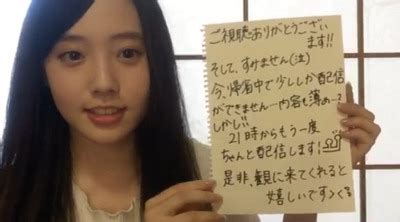 ご視聴ありがとうござい
ます!!
そして、すみません(泣)
今、帰省中で少ししか配信
ができません…内容も薄め…?
しかし!!
21時からもう一度
ちゃんと配信します!
是非、観に来てくれると
嬉しいです